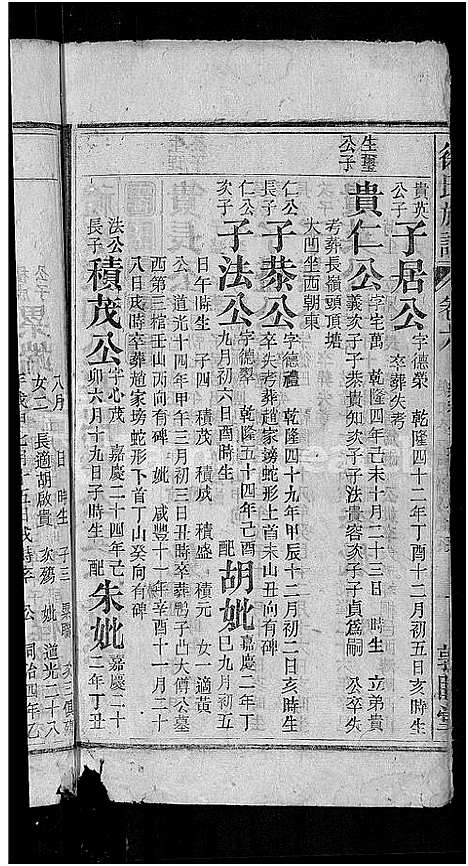 徐氏族譜 卷六
貴英公子 子居公 字德榮 乾隆四十二年丁酉十二月初五日亥時生
卒葬失考
生璽公子 貴仁公 字宅萬 乾隆四年己未十月二十三日 時生 立弟貴
義次子子恭貴知次子子法貴容次子子貞為嗣 公卒失
考葬長嶺頭頂塘
大凹坐西朝東
仁公長子 子恭公 字德禮 乾隆四十九年甲辰十二月初二日亥時生
卒失考葬趙家塝蛇形上首未山丑向有碑
仁公次子 子法公 字德翠 乾隆五十四年己酉
九月初六日酉時生 配 胡妣 嘉慶二年丁
巳九月初五
日午時生 子四 積茂 積盛 積元 女一適黃
公道光十四年甲午三月初三日丑時卒葬 子凸大傅公墓
西第三棺壬山丙向有碑 妣 咸豐十一年辛酉十一月二十
八日戌時卒葬趙家塝蛇形下首丁山癸向有碑
法公長子 積茂公 字心茂 嘉慶二十四年己
卯六月十九日子時生 配 朱妣 嘉慶二十
二年丁丑
八月 日 時生 子三
女二 長適胡啟貴 次殤 妣 道光二十八
公 同治四年乙